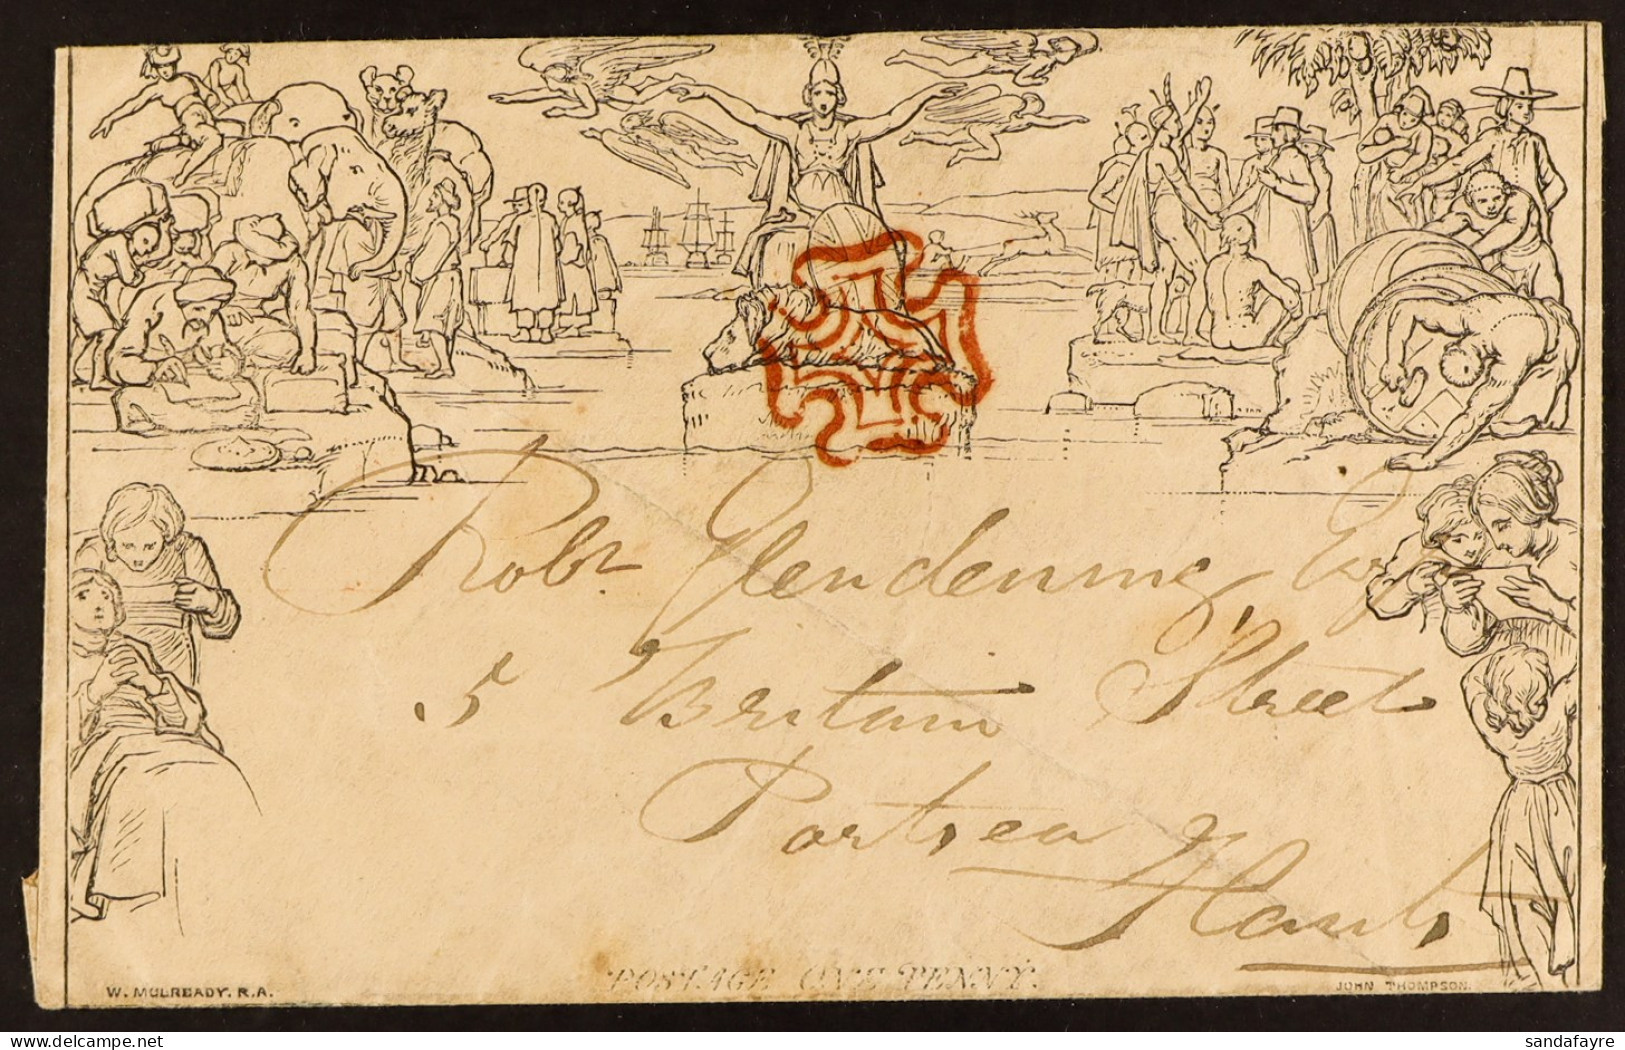 Robt Glendening, Esq
5 Britain Street
Portsea
Hants
POSTAGE ONE PENNY.
W. MULREADY. R.A.
JOHN THOMPSON.
sandafayre